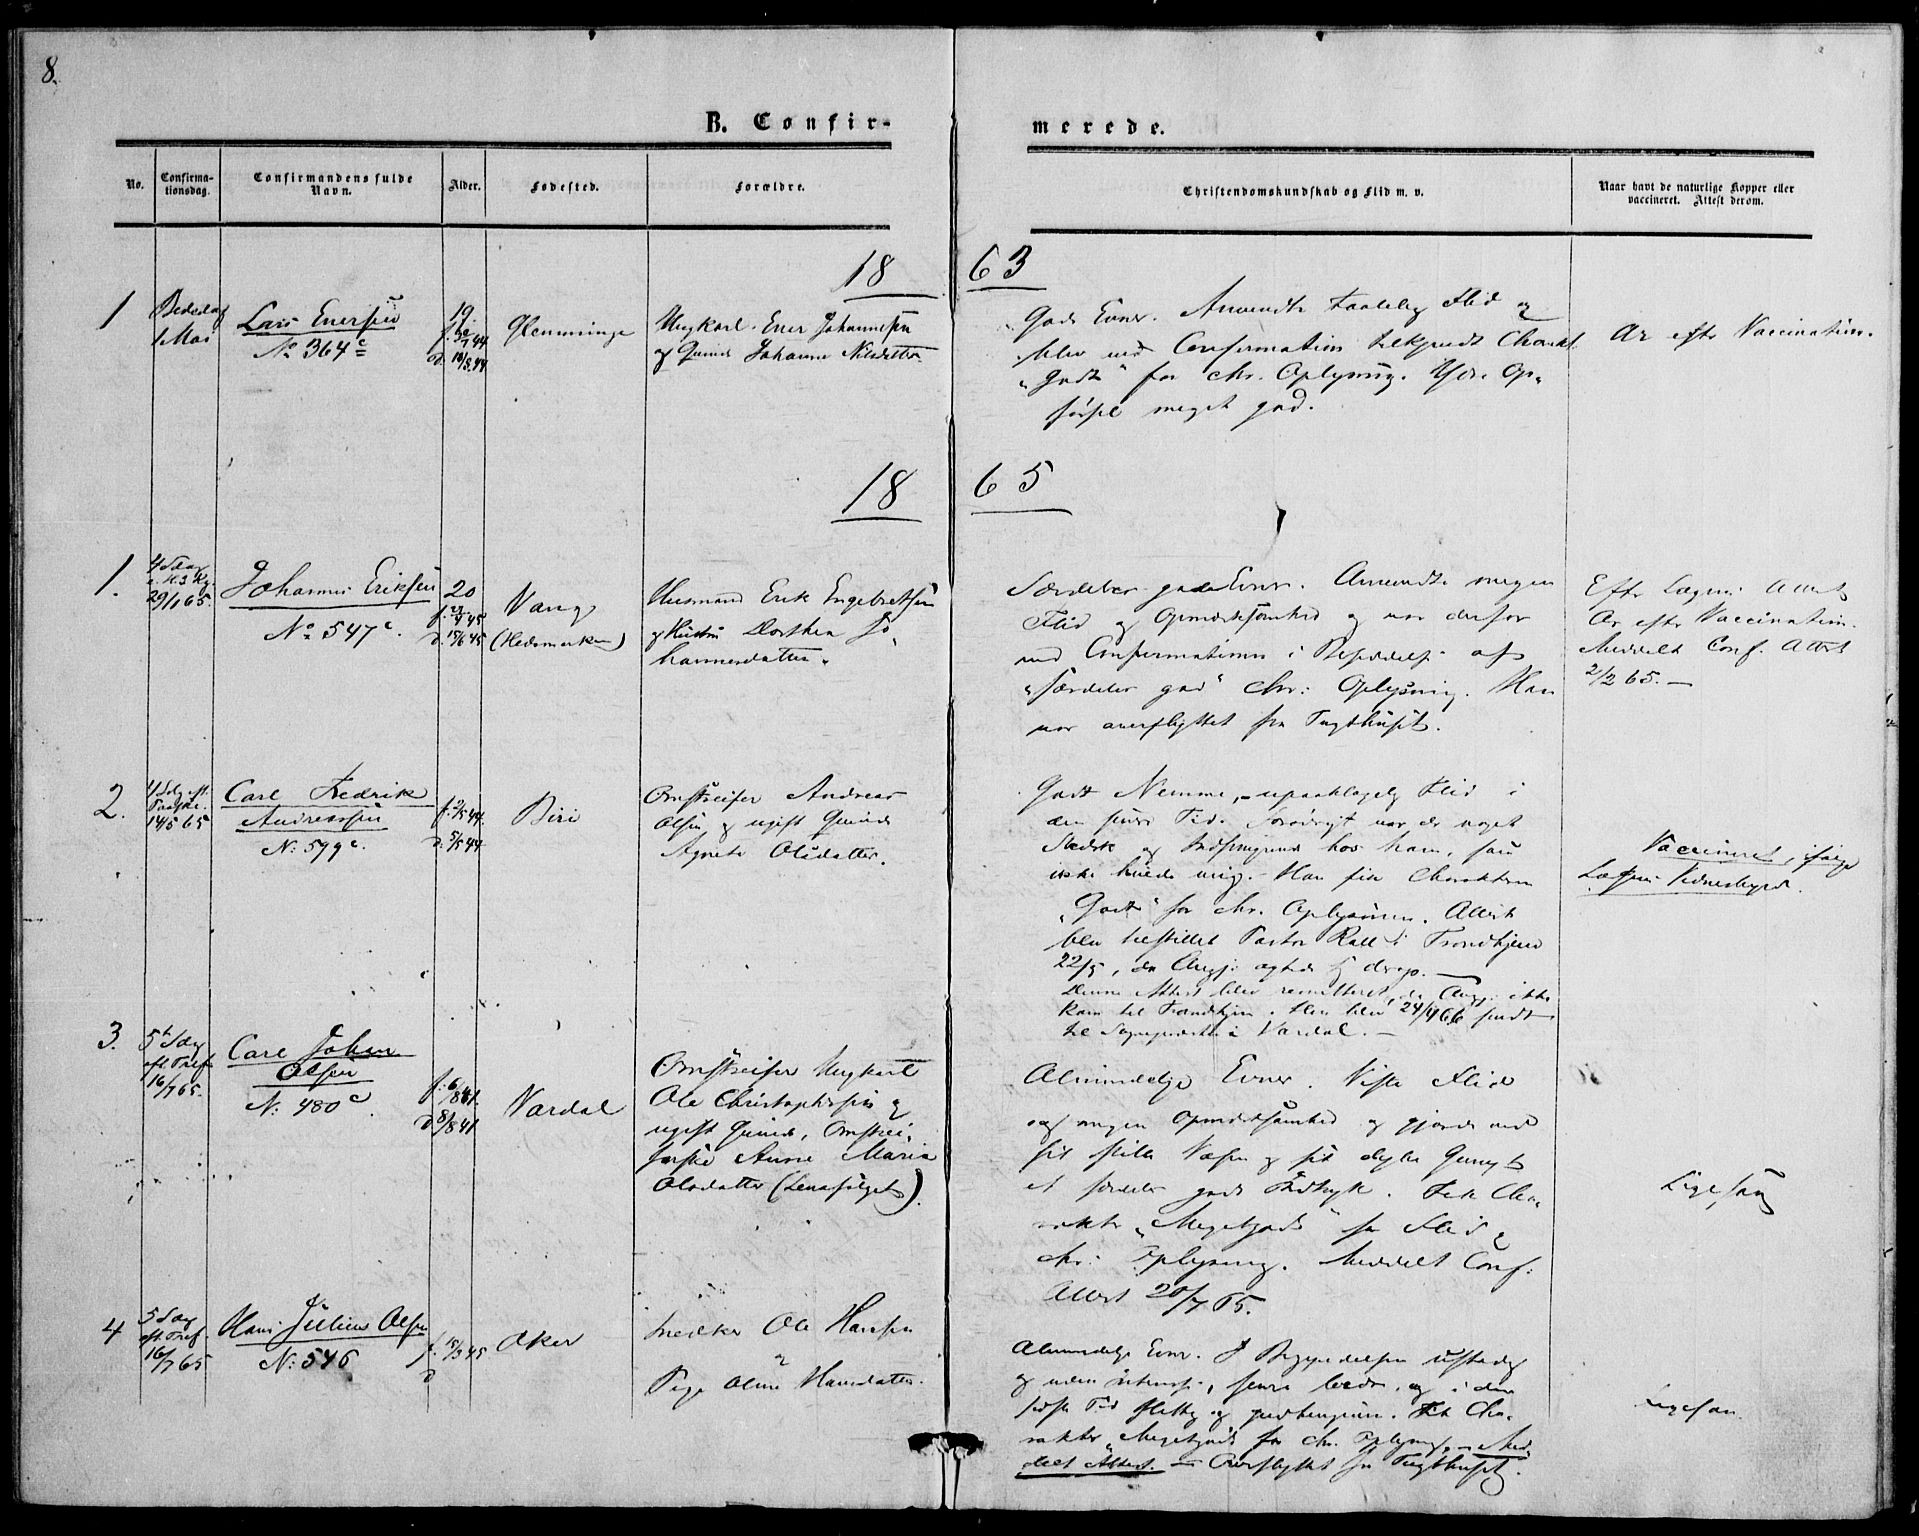 8.
B. Confir-
merede.
No.
Confirma-
tionsdag.
Confirmandens fulde
Navn.
Alder.
Fødested.
Forældre.
Christendomskundskab og Flid m. v.
Naar havt de naturlige Kopper eller
vaccineret. Attest derom.
18 63
1
Bededag
1 Mai
Lars Enersen
No 364c
19
d. 10/3 44
Glemminge
Ungkarl Ener Johannesen
og Qvinde Johanne Nilsdatter
Gode Evner. Anvendte taalelig Flid og
blev ved Confirmation tilkjendt Charakt.
"Godt" for chr. Oplysning. Ydre Op-
førsel meget god.
Ar efter Vaccination.
18 65
1.
4 Søndag
e. H. 3 Kg.
29/1 65.
Johannes Eriksen
No 547c.
20
f. 27/4 45
d. 15/6 45
Vang
(Hedemarken)
Husmand Erik Engebretsen
og Hustru Dorthea Jo-
hannesdatter.
Særdeles gode Evner. Anvendte megen
Flid og Opmærksomhed og var derfor
ved Confirmationen i Besiddelse af
"særdeles god" chr: Oplysning. Han
var overflyttet fra Tugthuset.
Efter Lægens Attest
Ar efter Vaccination.
Meddelt Conf. Attest
2/2 65.
2.
4 Sdg eft.
Paaske
14/5 65
Carl Fredrik
Andreassen
N: 599c.
f. 2/5 44.
d. 5/5 44
Biri
Omstreifer Andreas
Olsen og ugift Qvinde
Agnete Olsdatter.
Godt Nemme, upaaklagelig Flid i
den senere Tid. Forøvrigt var der noget
og hos ham, som
ikke mig. Han fik Charakteren
"Godt" for chr. Oplysning. Attest
blev tilstillet Pastor Rall i Trondhjem
22/5, da Angj. agtede sig derop.
Denne Attest blev remitteret, da Angj. ikke
kom til Trondhjem. Den blev 24/4 66 sendt
til Sognepræsten i Vardal.
Vaccineret, ifølge
Lægens Vidnesbyrd.
3.
5t Sdag
eft. Tref.
16/7 65.
Carl Johan
Olsen
N: 480c.
f: 6/8 41.
d 8/8 41
Vardal
Omstreifer Ungkarl
Ole Christophersen og
ugift Qvinde, Omstrei-
ferske Anne Maria
Olsdatter (Lenafølget).
Almindelige Evner. Viste Flid
og megen Opmærksomhed og gjorde ved
sit stille Væsen og sit
et særdeles godt Indtryk. Fik Cha-
rakter "Megetgodt" for Flid og
chr: Oplysning. Meddelt Conf:
Attest 20/7 65.
Ligesaa
4
5 Sdag
eft. Tref.
16/7 65
Hans Julius Olsen
N: 546
f. 15/3 45
d
Aker
Snedker Ole Hansen
og
Pige Oline Hansdatter.
Almindelige Evner. I Begyndelsen ustadig
og uden Interesse, senere bedre, og i den
sidste Tid flittig og . Fik Cha-
rakter "Megetgodt" for chr. Oplysning. Med-
delt Attest. Overflyttet fra Tugthuset.
Ligesaa.